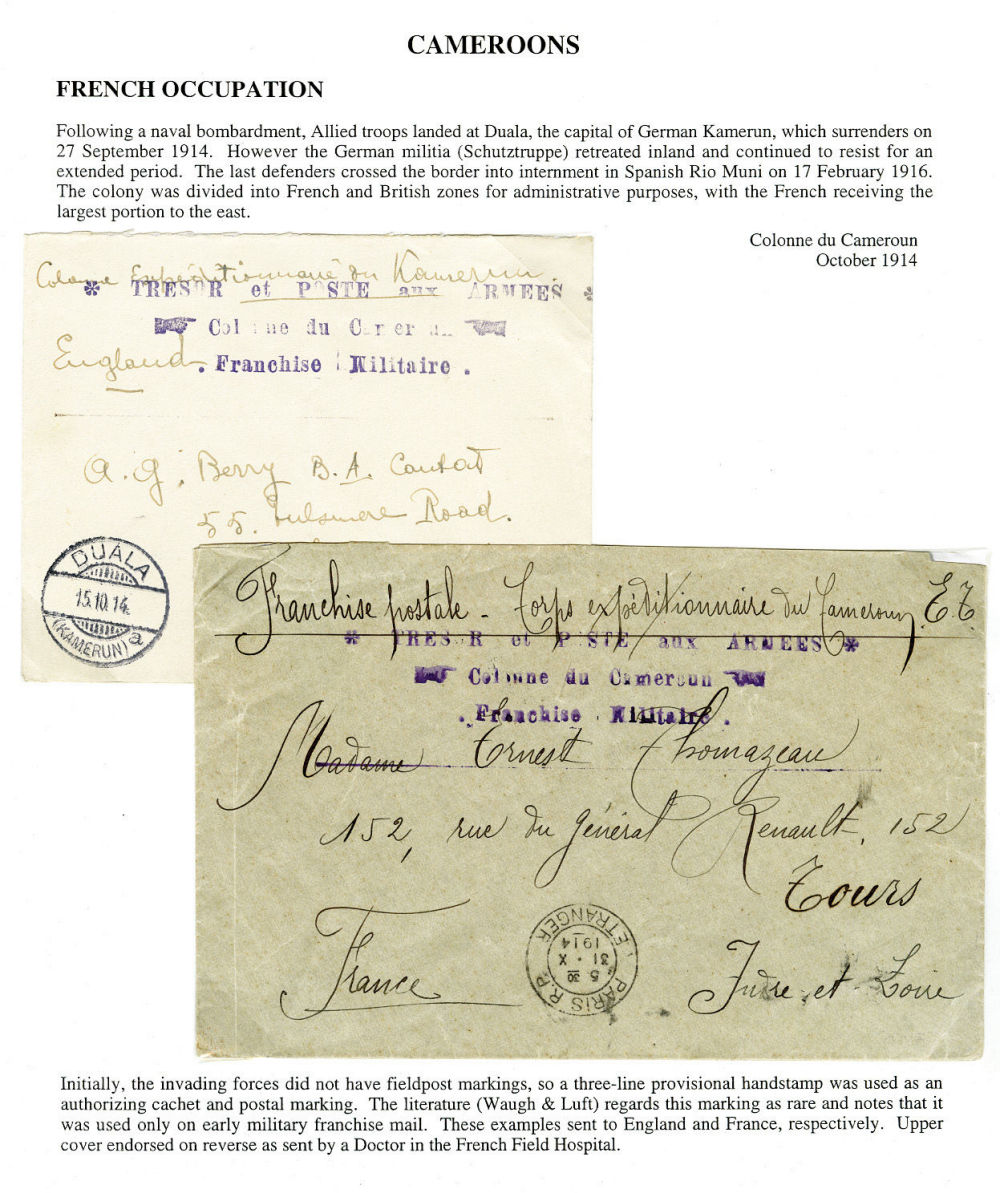 CAMEROONS
FRENCH OCCUPATION
Following a naval bombardment, Allied troops landed at Duala, the capital of German Kamerun, which surrenders on
27 September 1914. However the German militia (Schutztruppe) retreated inland and continued to resist for an
extended period. The last defenders crossed the border into internment in Spanish Rio Muni on 17 February 1916.
The colony was divided into French and British zones for administrative purposes, with the French receiving the
largest portion to the east.
Colonne du Cameroun
October 1914
Colonne Expéditionnaire du Kamerun.
* TRESOR et POSTE aux ARMEES *
Colonne du Cameroun
England
. Franchise Militaire .
A. G. Berry B.A. Cantab
55. Road.
DUALA
15.10.14.
(KAMERUN) a
Franchise postale - Corps expéditionnaire du Cameroun E.T.
* TRESOR et POSTE aux ARMEES *
Colonne du Cameroun
. Franchise Militaire .
Madame Ernest Thomazeau
152, rue du Général Renault, 152
Tours
France
Indre-et-Loire
PARIS R.P.
5 30
31 · X
1914
ETRANGER
Initially, the invading forces did not have fieldpost markings, so a three-line provisional handstamp was used as an
authorizing cachet and postal marking. The literature (Waugh & Luft) regards this marking as rare and notes that it
was used only on early military franchise mail. These examples sent to England and France, respectively. Upper
cover endorsed on reverse as sent by a Doctor in the French Field Hospital.